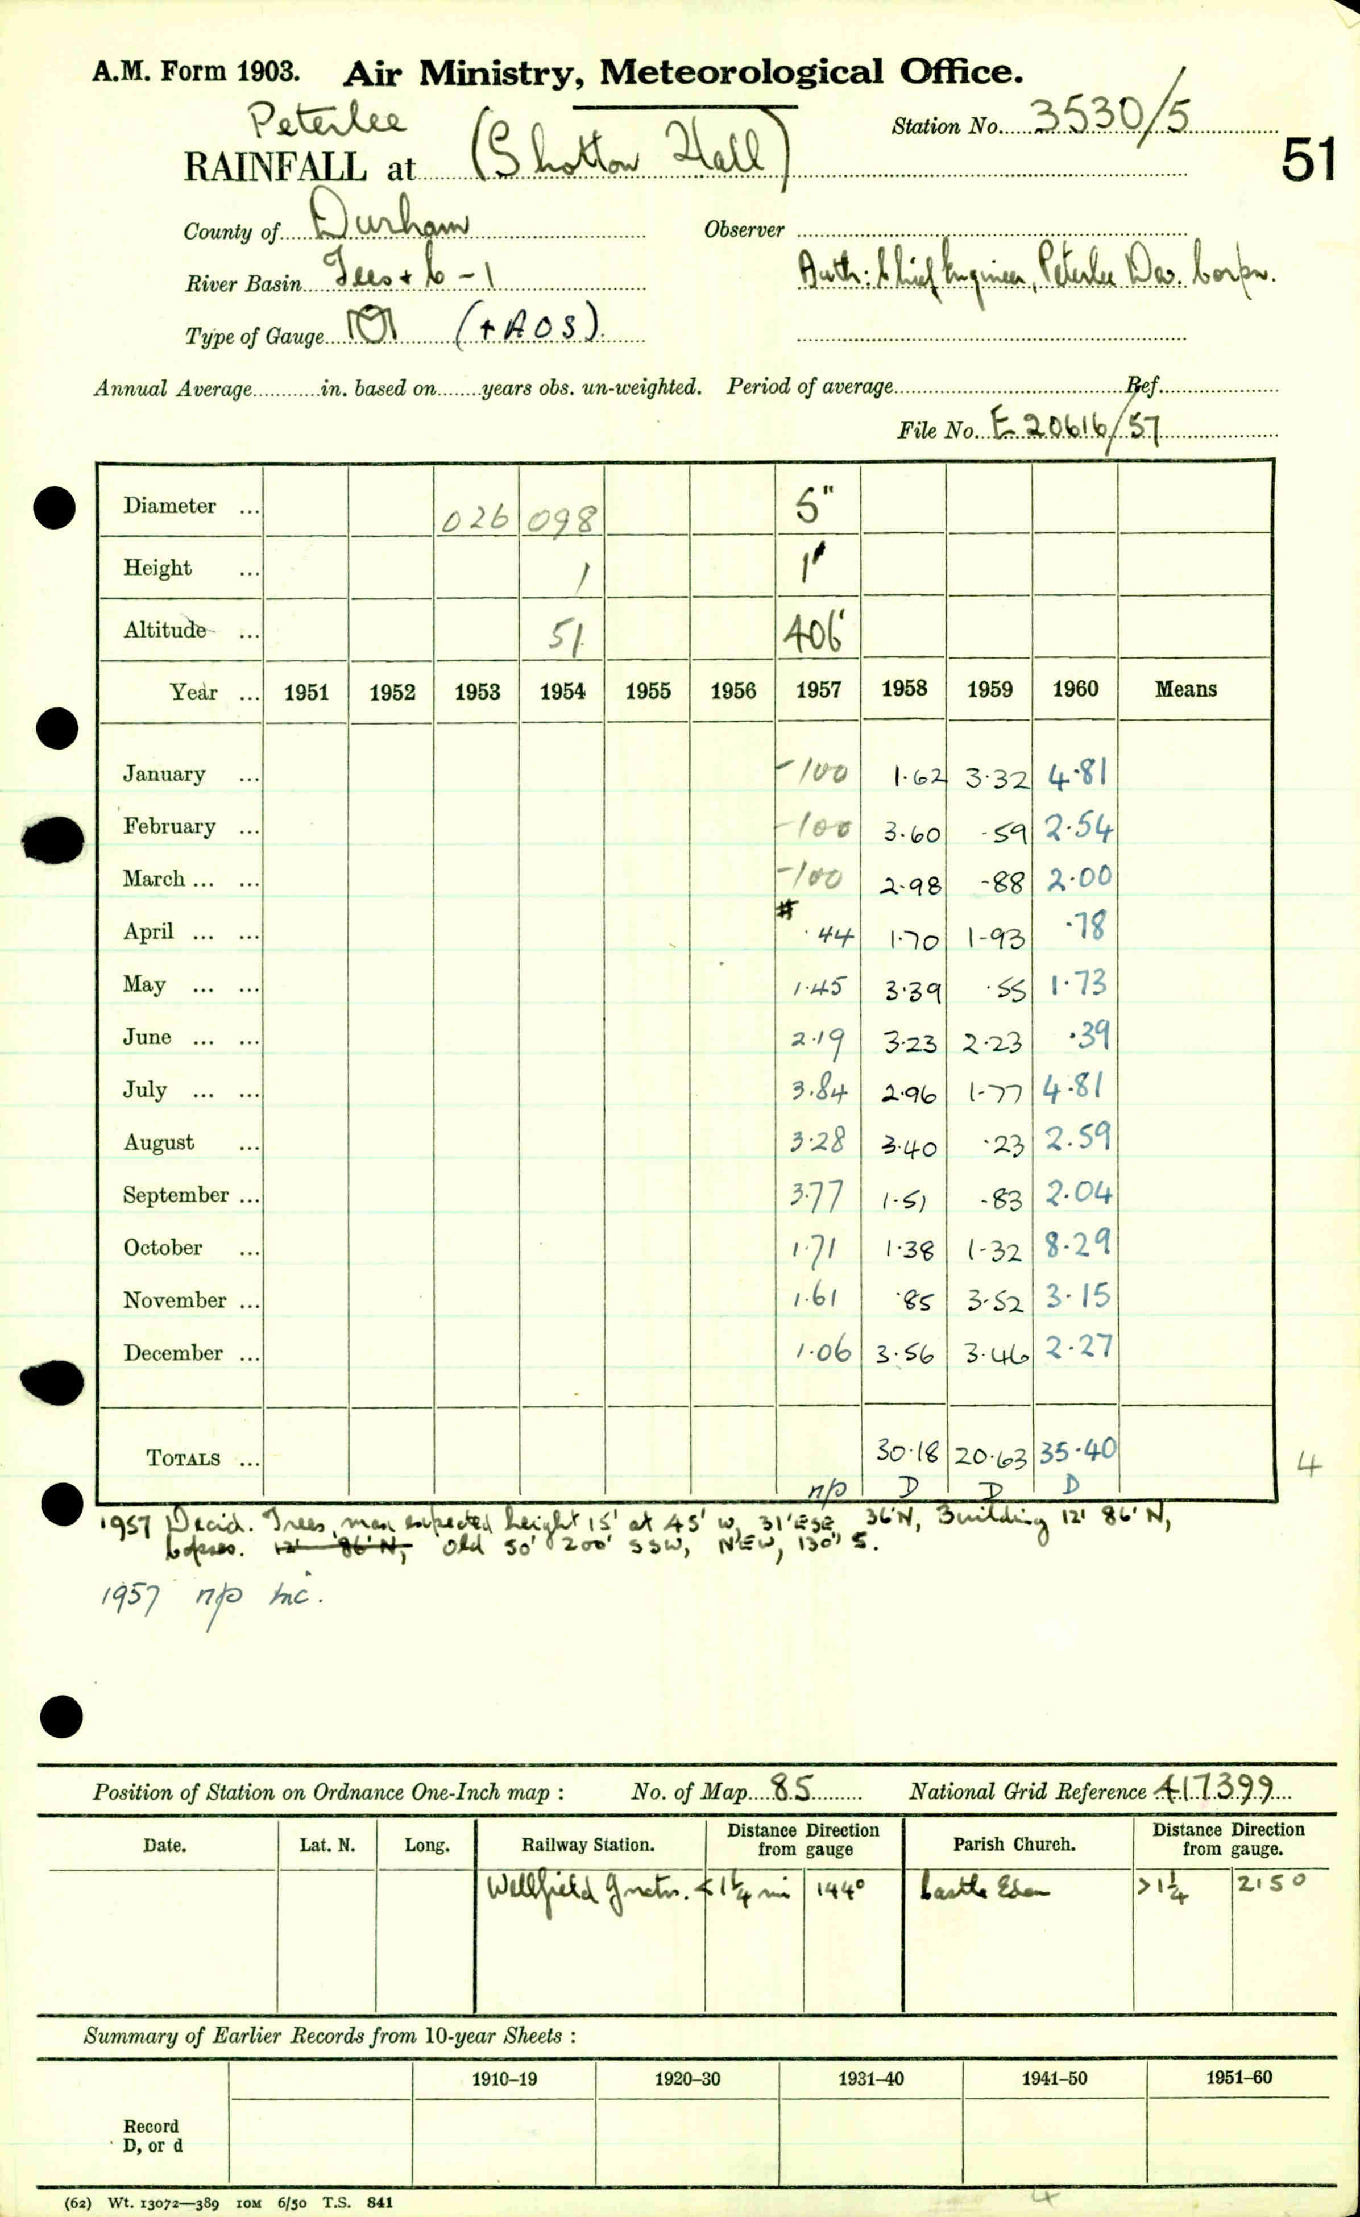 A.M. Form 1903. Air Ministry, Meteorological Office.
Peterlee
Station No. 3530/5
RAINFALL at (Shotton Hall)
51
County of Durham Observer
River Basin Tees + C - 1 Auth: Chief Engineer, Peterlee Dev. Corpn.
Type of Gauge (+AOS).
Annual Average in. based on years obs. un-weighted. Period of average Ref.
File No. E 20616/57
Diameter ... 026 098 5"
Height ... 1 1'
Altitude ... 51 406'
Year ... 1951 1952 1953 1954 1955 1956 1957 1958 1959 1960 Means
January ... -100 1.62 3.32 4.81
February ... -100 3.60 .59 2.54
March ... ... -100 2.98 .88 2.00
April ... ... # .44 1.70 1.93 .78
May ... ... 1.45 3.39 .55 1.73
June ... ... 2.19 3.23 2.23 .39
July ... ... 3.84 2.96 1.77 4.81
August ... 3.28 3.40 .23 2.59
September ... 3.77 1.51 .83 2.04
October ... 1.71 1.38 1.32 8.29
November ... 1.61 .85 3.52 3.15
December ... 1.06 3.56 3.46 2.27
TOTALS ... 30.18 20.63 35.40
4
n/p D D D
1957 Decid. Trees, max expected height 15' at 45' W, 31' ESE 36' N, Building 12' 86' N,
12' 86' N, Old 50' 200' SSW, 130' S.
1957 n/p inc.
Position of Station on Ordnance One-Inch map : No. of Map 85 National Grid Reference 417399
Date. Lat. N. Long. Railway Station. Distance Direction from gauge Parish Church. Distance Direction from gauge.
Wellfield Junctn. < 1¼ mi 144° Castle Eden >1¼ 215°
Summary of Earlier Records from 10-year Sheets :
1910–19 1920–30 1931–40 1941–50 1951–60
Record
D, or d
(62) Wt. 13072—389 10M 6/50 T.S. 841
4